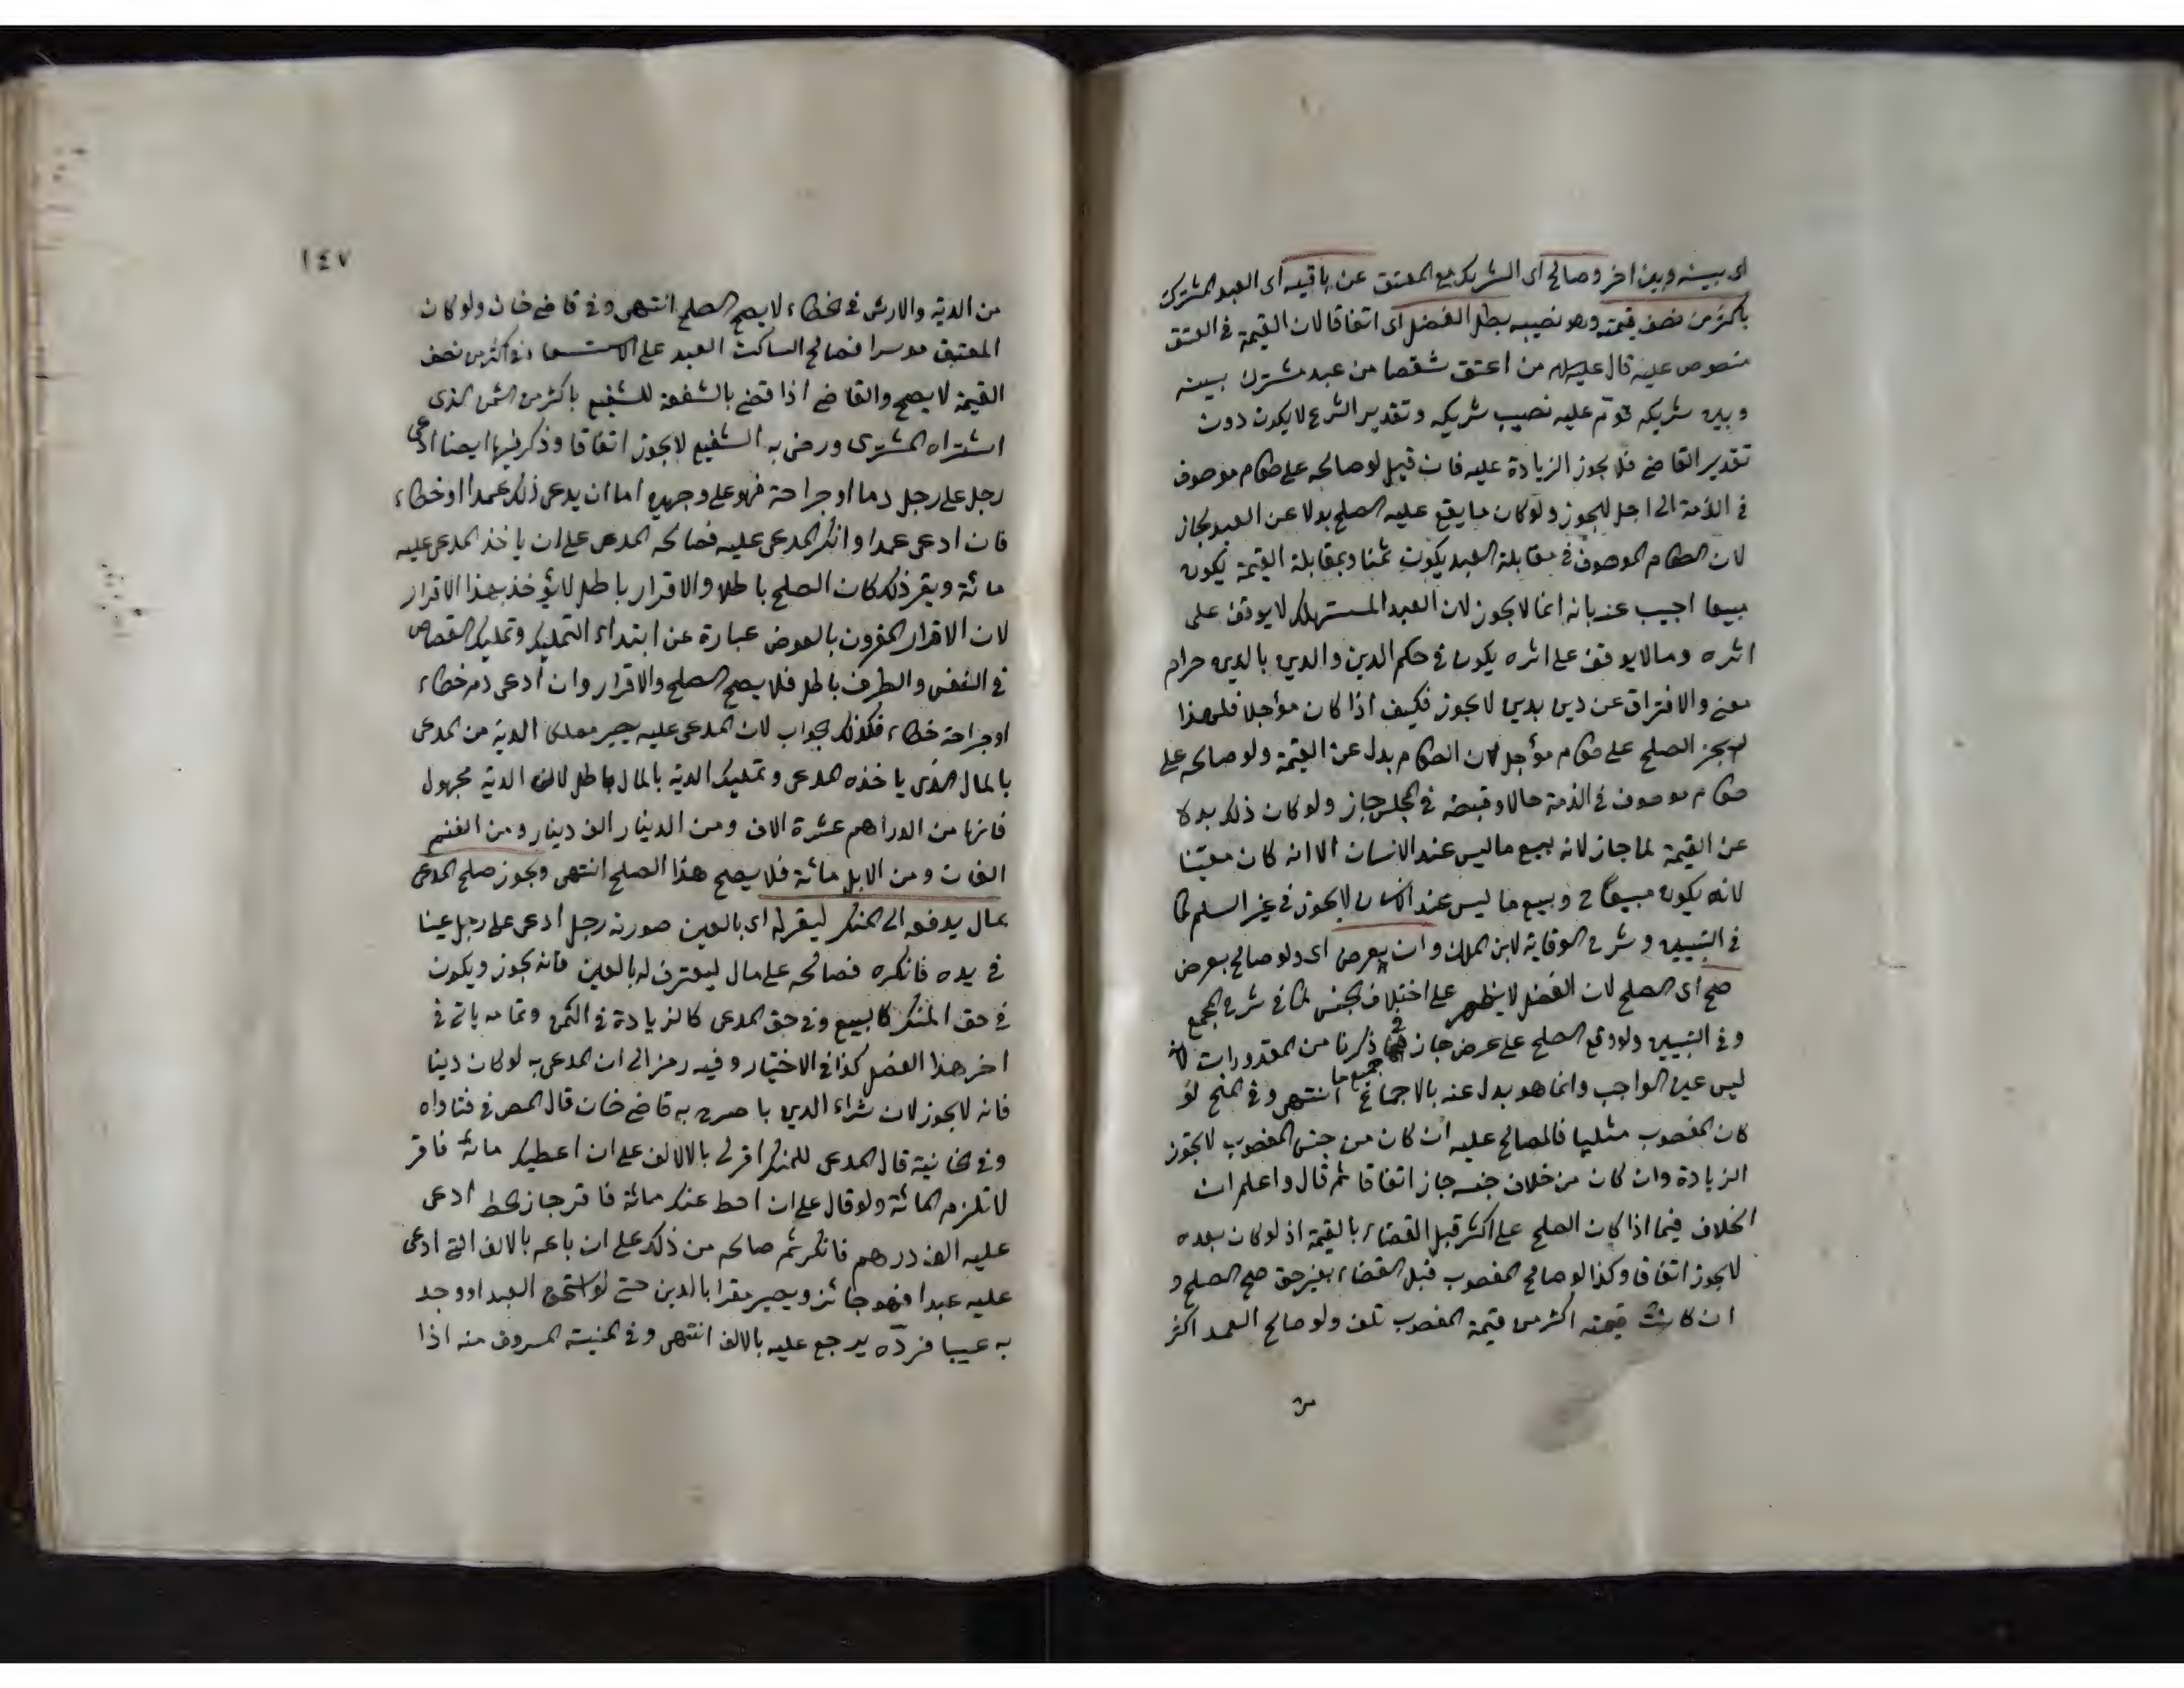 اى بينه وبين اخر وصالح اى الشريك مع المعتق عن باقيه اى العبد المشترك
باكثر من نصف قيمته وهو نصيبه بطل الفضل اى اتفاقا لان القيمة فى العتق
منصوص عليه قال عليه السلام من اعتق شقصا من عبد مشترك بينه
وبين شريكه قوّم عليه نصيب شريكه وتقدير الشرع لا يكون دون
تقدير القاضى فلا يجوز الزيادة عليه فان قيل لو صالحه على طعام موصوف
فى الذمة الى اجل لا يجوز ولو كان ما يقع عليه الصلح بدلا عن العبد لجاز
لان الطعام الموصوف فى مقابلة العبد يكون ثمنا وبمقابلة القيمة يكون
مبيعا اجيب عنه بانه انما لا يجوز لان العبد المستهلك لا يوقف على
اثره وما لا يوقف على اثره يكون فى حكم الدين والدين بالدين حرام
معنى والافتراق عن دين بدين لا يجوز فكيف اذا كان مؤجلا فلهذا
لم يجز الصلح على طعام مؤجل لان الطعام بدل عن القيمة ولو صالحه على
طعام موصوف فى الذمة حالا وقبضه فى المجلس جاز ولو كان ذلك بدلا
عن القيمة لما جاز لانه بيع ما ليس عند الانسان الا انه كان معيّنا
لانه يكون مبيعا ح وبيع ما ليس عند الانسان لا يجوز فى غير السلم كما
فى التبيين وشرح الوقاية لابن الملك وان بعرض اى ولو صالح بعرض
صح اى الصلح لان الفضل لا يظهر على اختلاف الجنس كما فى شرح المجمع
وفى التبيين ولو وقع الصلح على عرض جاز فى جميع ما ذكرنا من المقدورات لانه
ليس عين الواجب وانما هو بدل عنه بالاجماع انتهى وفى المنح لو
كان المغصوب مثليا فالمصالح عليه ان كان من جنس المغصوب لا تجوز
الزيادة وان كان من خلاف جنسه جاز اتفاقا ثم قال واعلم ان
الخلاف فيما اذا كان الصلح على اكثر قبل القضاء بالقيمة اذ لو كان بعده
لا يجوز اتفاقا وكذا لو صالح المغصوب قبل القضاء بغير حق صح الصلح و
ان كانت قيمته اكثر من قيمة المغصوب تلف ولو صالح العمد اكثر
من
١٤٧
من الدية والارش فى الخطاء لا يصح الصلح انتهى وفى قاضى خان ولو كان
المعتق موسرا فصالح الساكت العبد على الاستسعاء فى اكثر من نصف
القيمة لا يصح والقاضى اذا قضى بالشفعة للشفيع باكثر من الثمن الذى
اشتراه المشترى ورضى به الشفيع لا يجوز اتفاقا وذكر فيها ايضا ادعى
رجل على رجل دما او جراحة فهو على وجهين اما ان يدعى ذلك عمدا او خطاء
فان ادعى عمدا وانكر المدعى عليه فصالحه المدعى على ان ياخذ المدعى عليه
مائة ويقر ذلك كان الصلح باطلا والاقرار باطل لا يؤخذ بهذا الاقرار
لان الاقرار المقرون بالعوض عبارة عن ابتداء التمليك وتمليك القصاص
فى النفس والطرف باطل فلا يصح الصلح والاقرار وان ادعى دم خطاء
او جراحة خطاء فكذلك الجواب لان المدعى عليه يصير مملك الدية من المدعى
بالمال الذى ياخذه المدعى وتمليك الدية بالمال باطل لان الدية مجهول
فانها من الدراهم عشرة الاف ومن الدينار الف دينار ومن الغنم
الفان ومن الابل مائة فلا يصح هذا الصلح انتهى ويجوز صلح المدعى
بمال يدفعه الى المنكر ليقر له اى بالعين صورته رجل ادعى على رجل عينا
فى يده فانكره فصالحه على مال ليعترف له بالعين فانه يجوز ويكون
فى حق المنكر كالبيع وفى حق المدعى كالزيادة فى الثمن وتمامه ياتى فى
اخر هذا الفصل كذا فى الاختيار وفيه رمز الى ان المدعى به لو كان دينا
فانه لا يجوز لان شراء الدين با صرح به قاضى خان قال المص فى فتاواه
وفى الخانية قال المدعى للمنكر اقر لى بالالف على ان اعطيك مائة فاقر
لا تلزم المائة ولو قال على ان احط عنك مائة فاقر جاز الحط ادعى
عليه الف درهم فانكر ثم صالحه من ذلك على ان باعه بالالف التى ادعى
عليه عبدا فهو جائز ويصير مقرا بالدين حتى لو استحق العبد او وجد
به عيبا فردّه يرجع عليه بالالف انتهى وفى المنية المسروق منه اذا